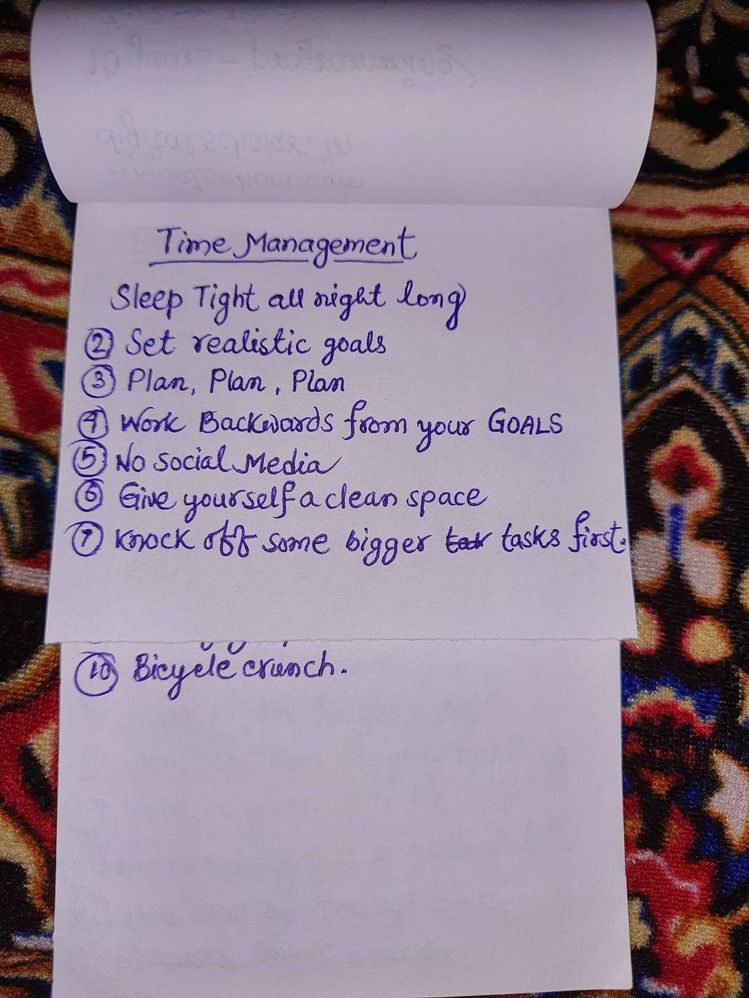 Time Management
Sleep Tight all night long
② Set realistic goals
③ Plan, Plan, Plan
④ Work Backwards from your GOALS
⑤ No Social Media
⑥ Give yourself a clean space
⑦ Knock off some bigger tasks first.
⑩ Bicycle crunch.